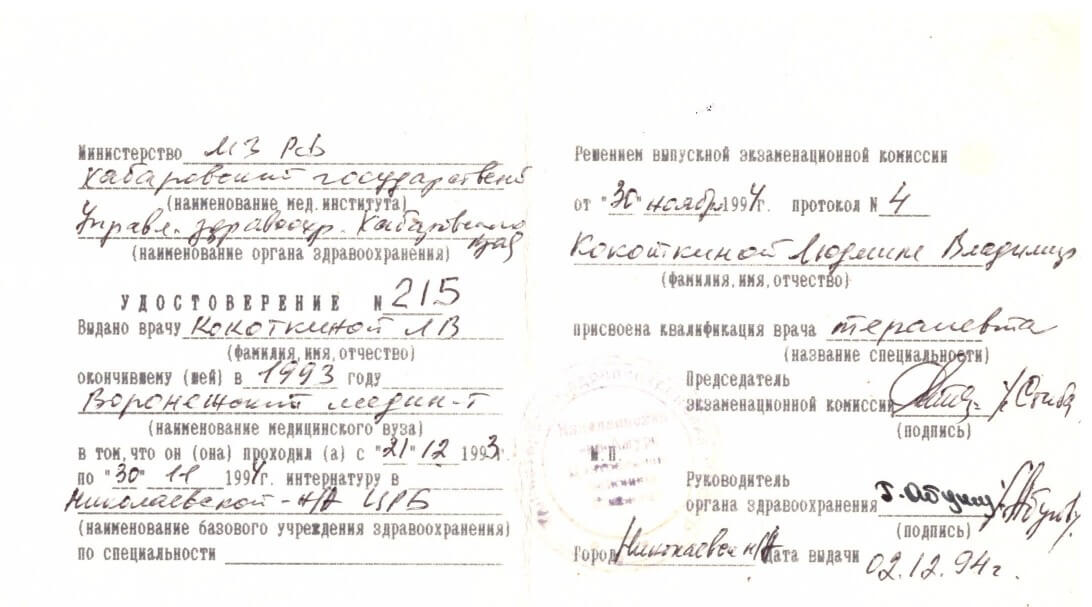 Министерство МЗ РФ
Хабаровский государствен
(наименование мед. института)
Управл. здравоохр. Хабаровского края
(наименование органа здравоохранения)
УДОСТОВЕРЕНИЕ N 215
Выдано врачу Кокоткиной ЛВ
(фамилия, имя, отчество)
окончившему (шей) в 1993 году
Воронежский медин-т
(наименование медицинского вуза)
в том, что он (она) проходил (а) с "21" 12 1993г.
по "30" 11 1994г. интернатуру в
Николаевской-н/А ЦРБ
(наименование базового учреждения здравоохранения)
по специальности
Решением выпускной экзаменационной комиссии
от "30" ноября 1994г. протокол N 4
Кокоткиной Людмиле Владимир
(фамилия, имя, отчество)
присвоена квалификация врача терапевта
(название специальности)
Председатель
экзаменационной комиссии
(подпись)
М.П.
Руководитель
органа здравоохранения
(подпись)
Город Николаевск н/А Дата выдачи
02.12.94г.